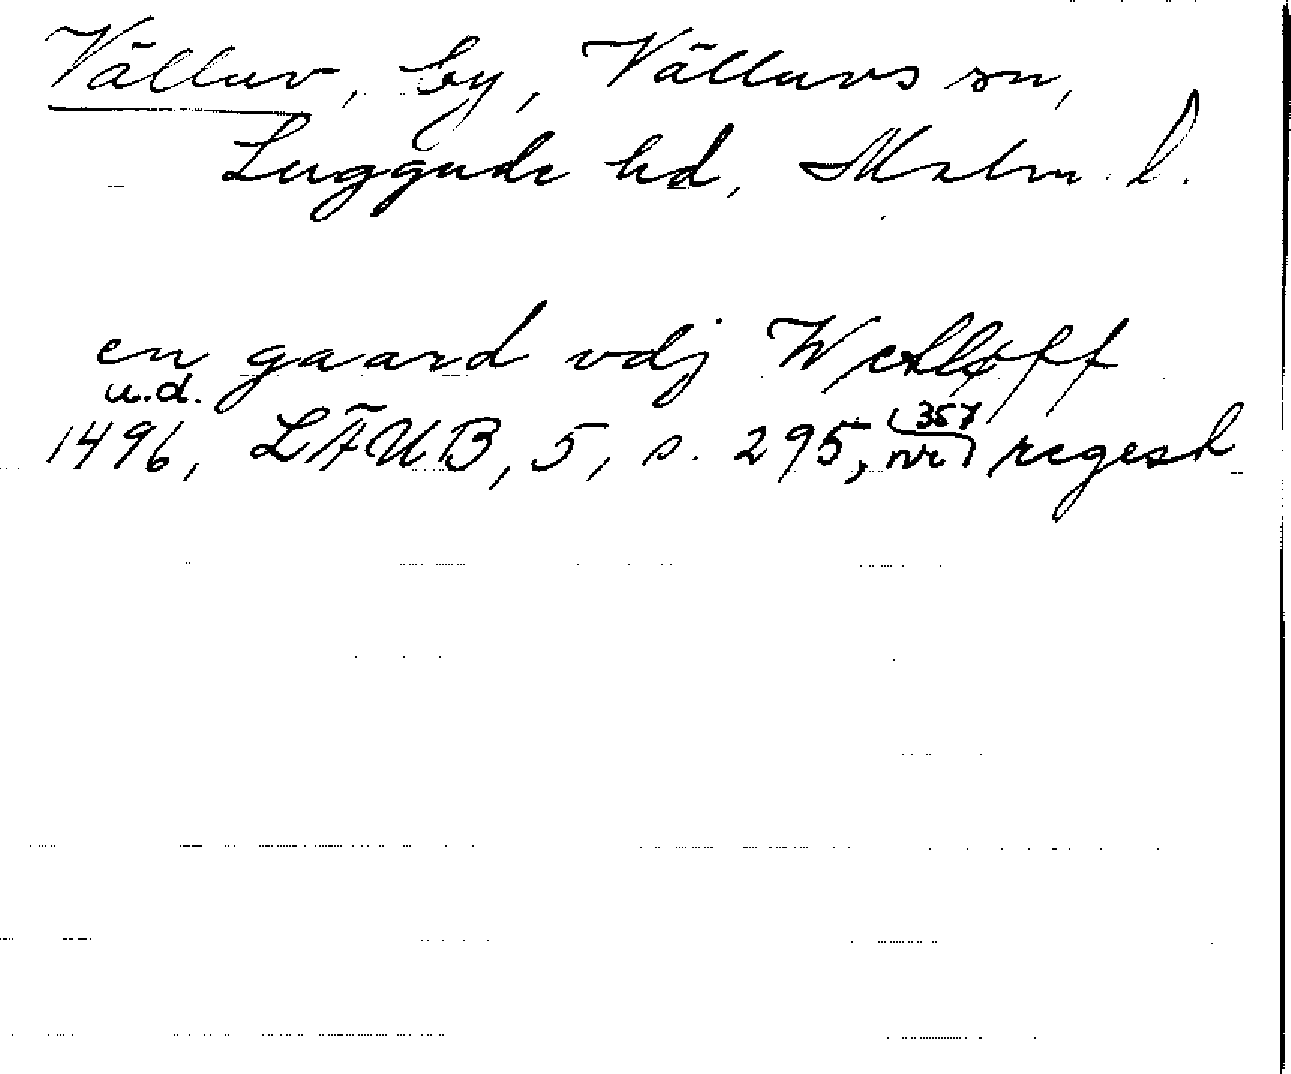 Välluv, by, Välluvs sn,
Luggude hd, Malm. l.
en gaard vdj Wetløff
u.d.
1496, LÄUB, 5, s. 295, nr 357 regest